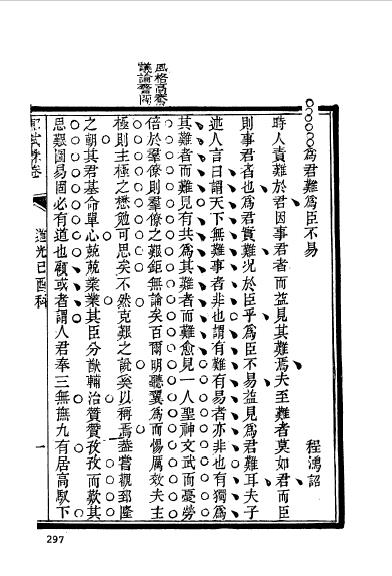 風格高
議論警
為君難為臣不易
程鴻詔
時人責難於君因事君者而益見其難焉夫至難者莫如君而臣
則事君者也為君實難况於臣乎為臣不易益見為君難耳夫子
述人言曰謂天下無難事者非也謂有難有易者亦非也有獨為
其難者而難見有共為其難者而難愈見一人聖神文武而憂勞
倍於羣僚則羣僚之艱鉅無論矣百爾明聽翼為而惕厲效夫主
極則主極之懋勉可思矣不然克艱之說奚以稱焉蓋嘗觀郅隆
之朝其君基命單心兢兢業業其臣分猷輔治贊贊孜孜而歎其
思艱圖易固必有道也顧或者謂人君奉三無撫九有居高馭下
道光己酉科
一
297